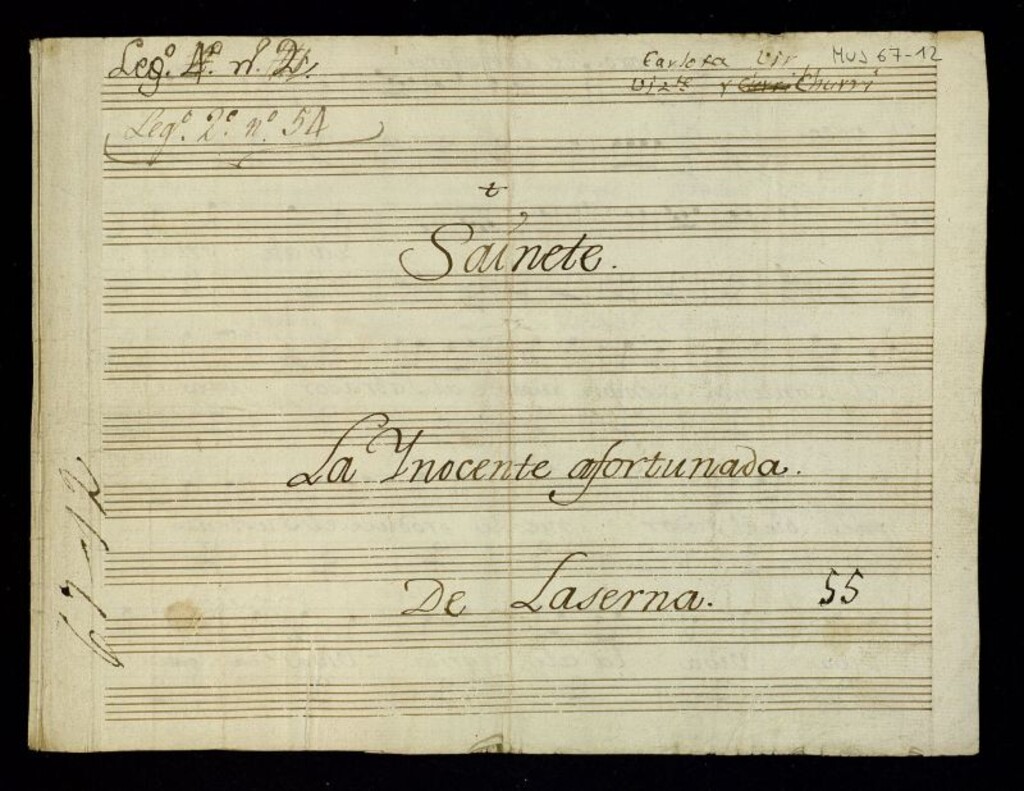 Leg.º 4.º n.º 2.
Carlota Vir MUS 67-12
Viz.te y Churri
Leg.º 2.º n.º 54
Sainete.
La Ynocente afortunada.
De Laserna. 55
67-12